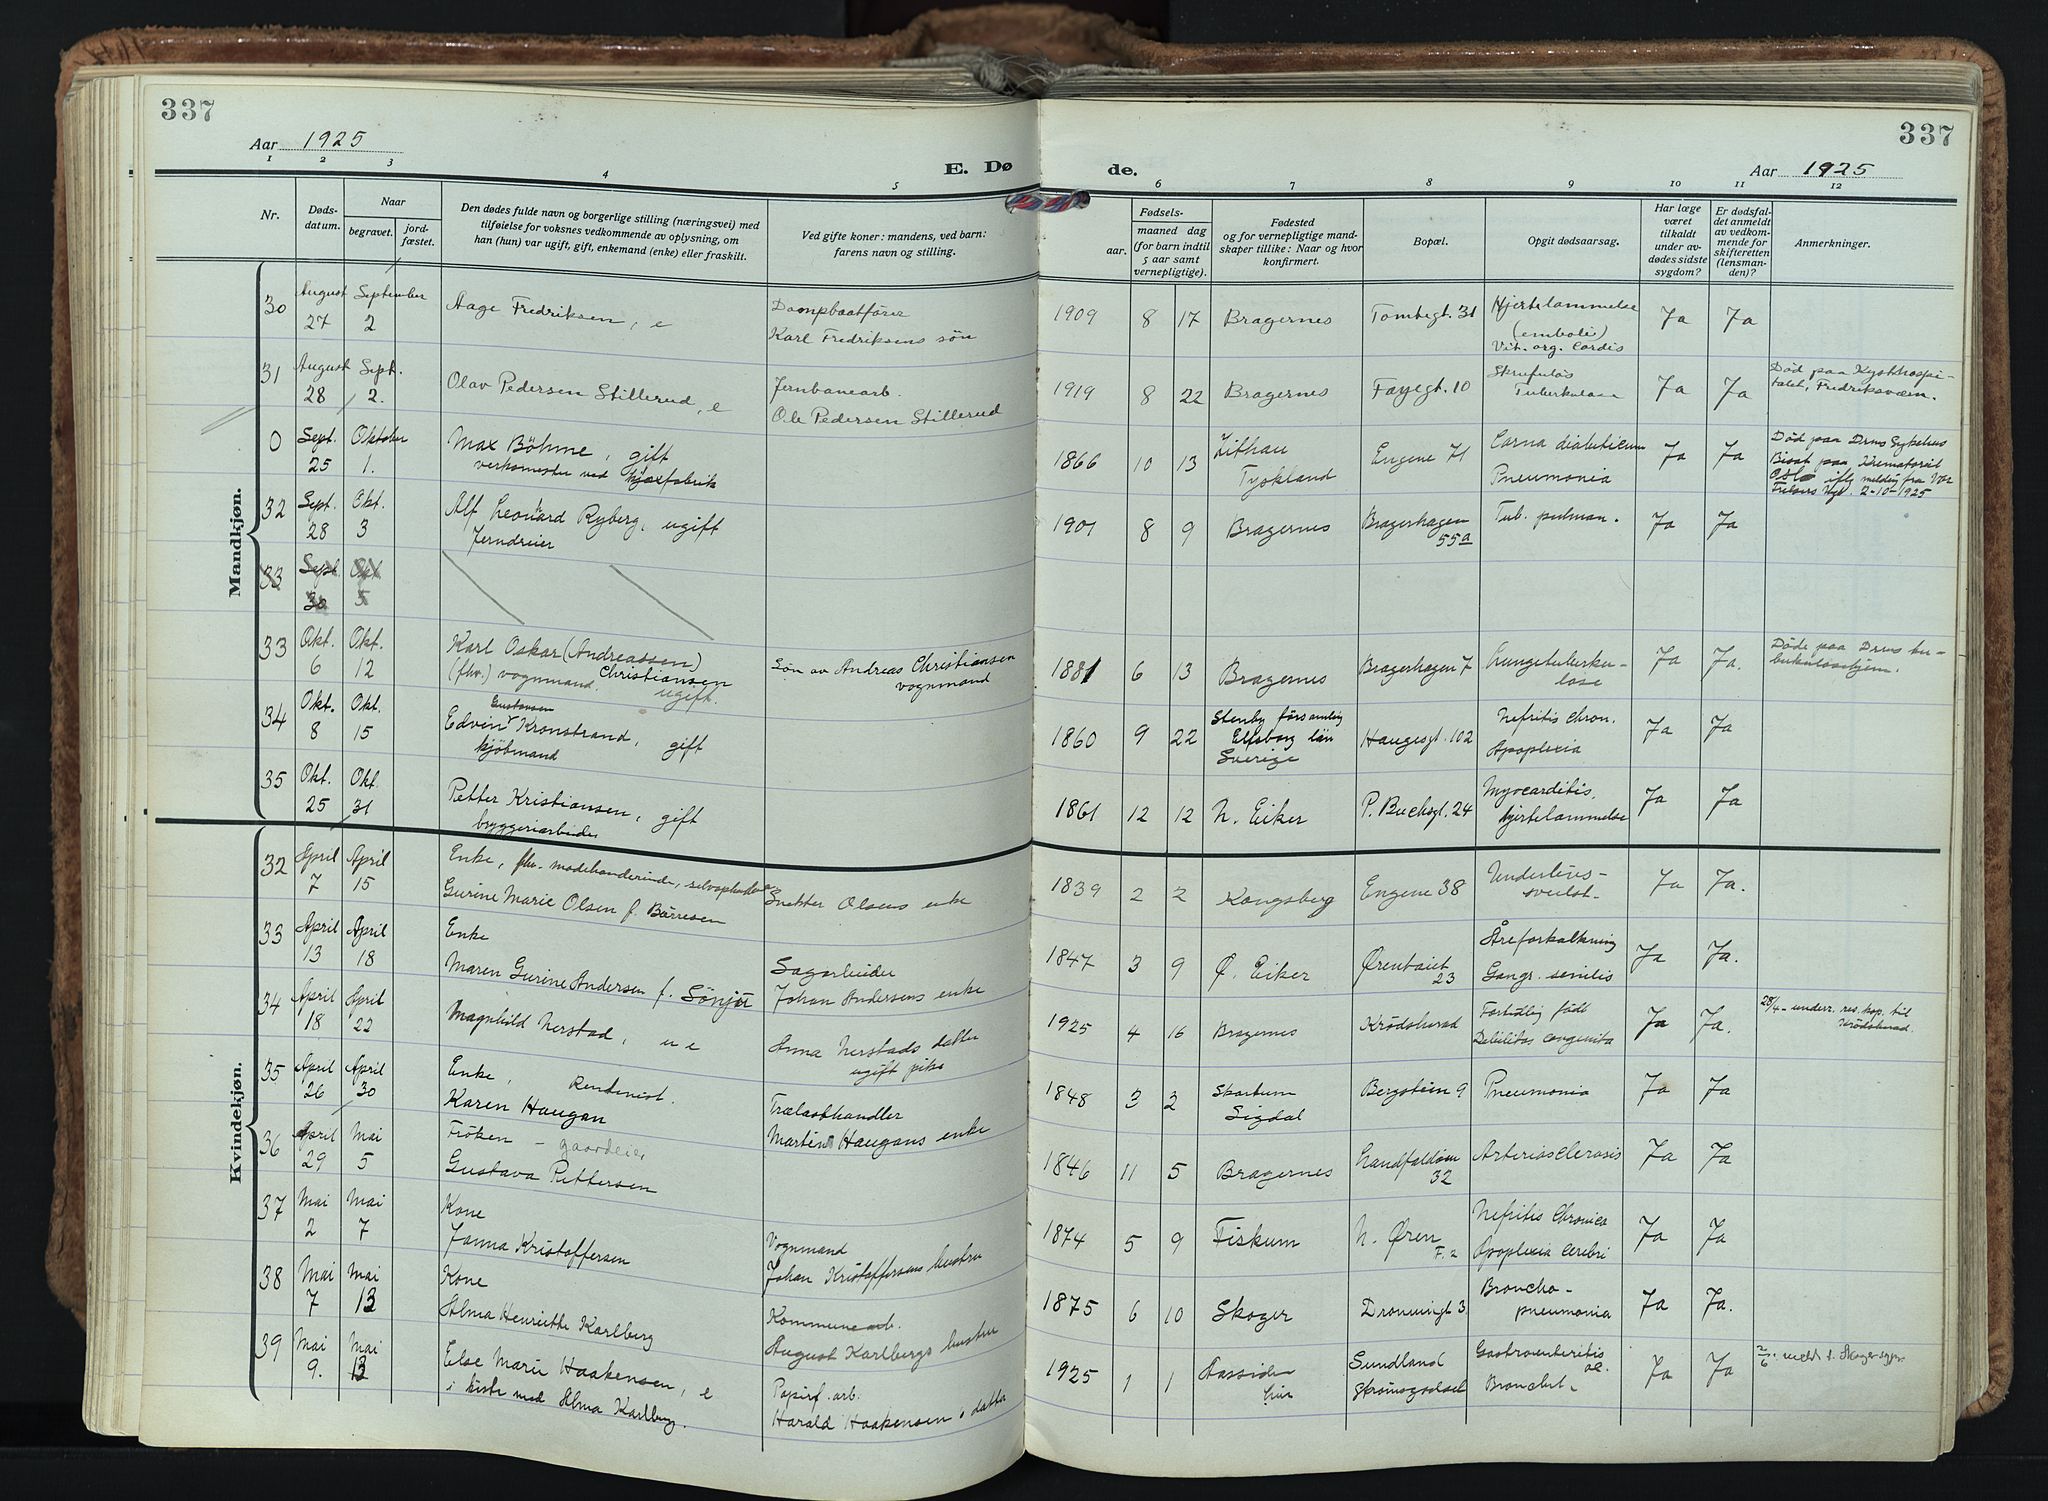 337
337
Aar 1925
E. Dø
de.
Aar 1925
1 2 3 4 5 6 7 8 9 10 11 12
Nr.
Døds-
datum.
Naar
begravet.
jord-
fæstet.
Den dødes fulde navn og borgerlige stilling (næringsvei) med
tilføielse for voksnes vedkommende av oplysning, om
han (hun) var ugift, gift, enkemand (enke) eller fraskilt.
Ved gifte koner: mandens, ved barn:
farens navn og stilling.
Fødsels-
aar.
maaned dag
(for barn indtil
5 aar samt
vernepligtige).
Fødested
og for vernepligtige mand-
skaper tillike: Naar og hvor
konfirmert.
Bopæl.
Opgit dødsaarsag.
Har læge
været
tilkaldt
under av-
dødes sidste
sygdom?
Er dødsfal-
det anmeldt
av vedkom-
mende for
skifteretten
(lensman-
den)?
Anmerkninger.
Mandkjøn.
30 August 27 September 2
Aage Fredriksen, e
Dampbaatfører
Karl Fredriksens søn
1909 8 17 Bragernes Tomtegt. 31
Hjertelammelse
(emboli)
Vit. org. Cordis
Ja Ja
31 August 28 Sept. 2.
Olav Pedersen Stillerud, e
Jernbanearb.
Ole Pedersen Stillerud
1919 8 22 Bragernes Fayegt. 10
Skrufuløs
Tuberkulose
Ja Ja
Død paa Kysthospi-
talet, Fredriksværn.
0 Sept. 25 Oktober 1.
Max Böhme, gift
verksmester ved kjæxfabrik
1866 10 13
Zithau
Tyskland
Engene 71
Coma diabeticum
Pneumonia
Ja Ja
Død paa Drms Sykehus
Bisat paa Krematoriet
Oslo iflg melding fra
2-10-1925
32 Sept. 28 Okt. 3
Alf Leonard Ryberg, ugift
Jerndreier
1901 8 9 Bragernes
Bragerhagen
55a
Tub. pulman.
Ja Ja
33 Sept. 30 Okt 5
33 Okt. 6 Okt. 12
Karl Oskar (Andreassen)
(fhv.) vognmand. Christiansen
ugift.
Søn av Andreas Christiansen
vognmand
1881 6 13 Bragernes Bragerhagen 7
Lungetuberku-
lose
Ja Ja.
Døde paa Drms tu-
berkulosehjem.
34 Okt. 8 Okt. 15
Gustavsen
Edvin Kronstrand, gift
kjøbmand
1860 9 22
Stenby församling
Elfsborg län
Sverige
Haugesgt. 102
Nefritis Chron.
Apoplexia
Ja Ja
35 Okt. 25 Okt. 31
Petter Kristiansen, gift
bryggeriarbeider
1861 12 12 N. Eiker P. Buchsgt. 24
Myocarditis,
hjertelammelse
Ja Ja
Kvindekjøn.
32 April 7 April 15
Enke, fhv. modehandlerinde,
Gurine Marie Olsen f. Børresen
Snekker Olsens enke
1839 2 2 Kongsberg Engene 38
Underlivs-
svulst.
Ja Ja.
33 April 13 April 18
Enke
Maren Gurine Andersen f. Sönju
Sagarbeider
Johan Andersens enke
1847 3 9 Ø. Eiker
Ørentoiet
23
Åreforkalkning
Gangr. senilis
Ja Ja.
34 April 18 April 22
Magnhild Nerstad, u e
Anna Nerstads datter
ugift pike
1925 4 16 Bragernes Krødsherad
Fortidlig født
Debilitas congenita
Ja Ja.
28/4 - underr. res. kap. til
Krødsherad.
35 April 26 April 30
Enke, Rendenist.
Karen Haugan
Trælasthandler
Martin Haugans enke
1848 3 2
Skartum
Sigdal
Bergstien 9 Pneumonia
Ja Ja
36 April 29 Mai 5
Frøken - gaardeier
Gustava Pettersen
1846 11 5 Bragernes
Landfaldøen
32
Arteriosclerosis
Ja Ja
37 Mai 2 Mai 7
Kone
Janna Kristoffersen
Vognmand
Johan Kristoffersens hustru
1874 5 9 Fiskum
N. Øren
F. 2
Nefritis Chronica
Apoplexia Cerebri
Ja Ja
38 Mai 7 Mai 13
Kone
Alma Henriette Karlberg
Kommunearb.
August Karlbergs hustru
1875 6 10 Skoger Dronningt 3
Broncho-
pneumonia
Ja Ja.
39 Mai 9. Mai 13
Else Marie Haakensen, e
i kiste med Alma Karlberg.
Papirf. arb.
Harald Haakensens datter
1925 1 1
Sundland
Strømsgodset
Gastroenteritis
ac.
Bronchit.
Ja Ja
2/6. meldt t. Skoger